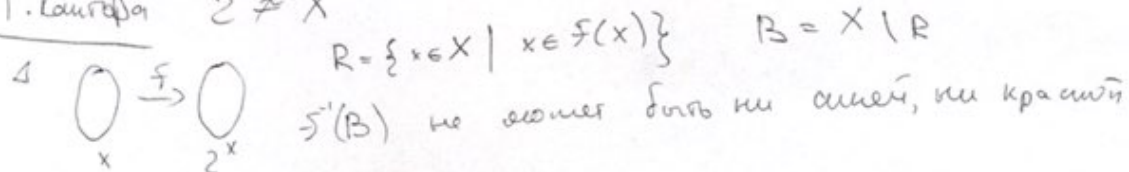 Т. Кантора 2^X ≠ X
Δ X f→ 2^X R = { x ∈ X | x ∈ f(x) } B = X \ R
f⁻¹(B) не может быть ни синей, ни красной